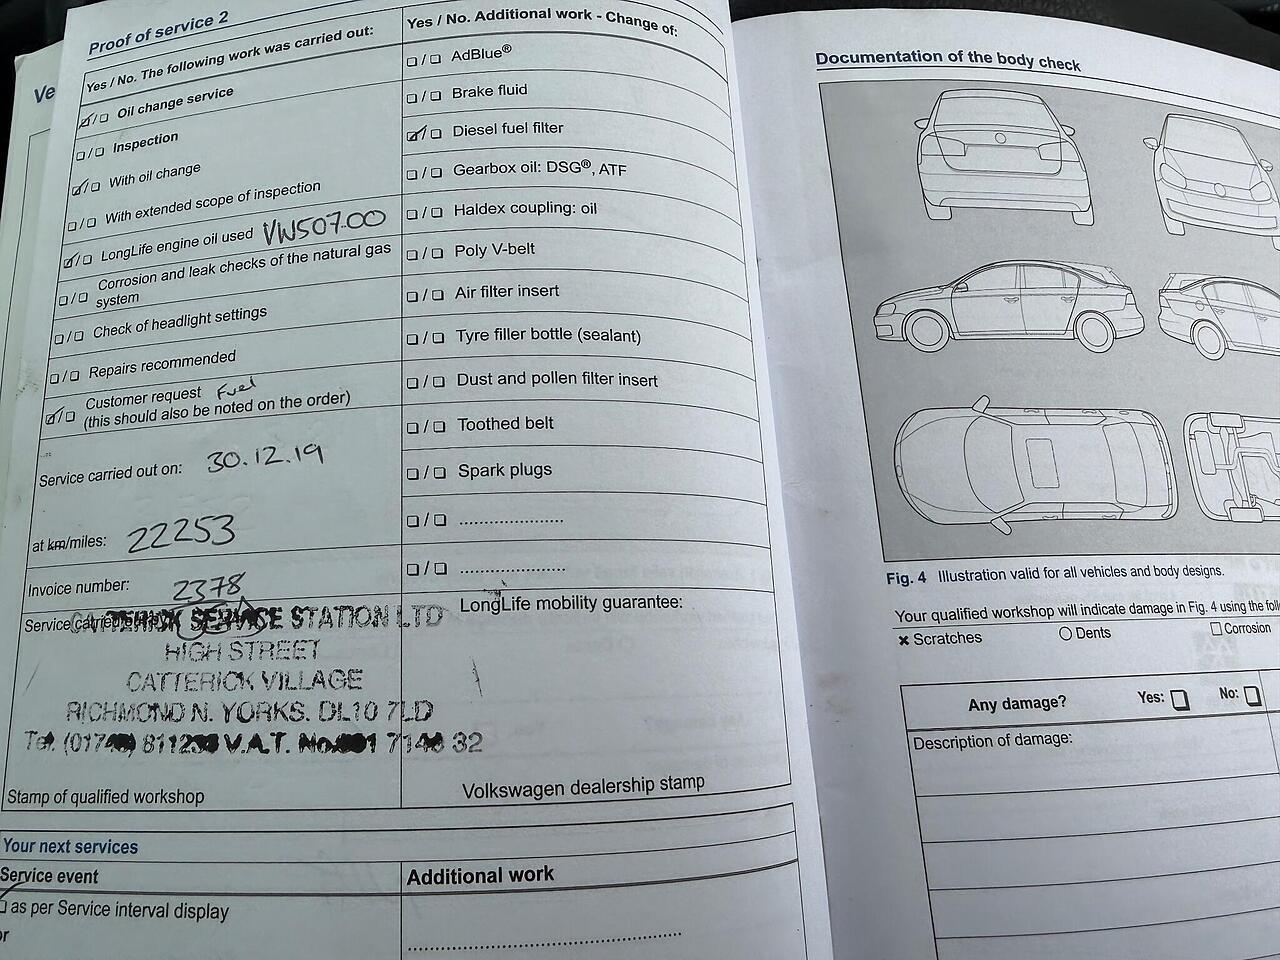 Proof of service 2
Yes / No. The following work was carried out:
☑/☐ Oil change service
☐/☐ Inspection
☑/☐ With oil change
☐/☐ With extended scope of inspection
☑/☐ LongLife engine oil used VW507.00
☐/☐ Corrosion and leak checks of the natural gas
system
☐/☐ Check of headlight settings
☐/☐ Repairs recommended
☑/☐ Customer request Fuel
(this should also be noted on the order)
Service carried out on: 30.12.19
at km/miles: 22253
Invoice number: 2378
Service carried
CATTERICK SERVICE STATION LTD
HIGH STREET
CATTERICK VILLAGE
RICHMOND N. YORKS. DL10 7LD
Tel. V.A.T. No. 32
Stamp of qualified workshop
Yes / No. Additional work - Change of:
☐/☐ AdBlue®
☐/☐ Brake fluid
☑/☐ Diesel fuel filter
☐/☐ Gearbox oil: DSG®, ATF
☐/☐ Haldex coupling: oil
☐/☐ Poly V-belt
☐/☐ Air filter insert
☐/☐ Tyre filler bottle (sealant)
☐/☐ Dust and pollen filter insert
☐/☐ Toothed belt
☐/☐ Spark plugs
☐/☐ .....................
☐/☐ .....................
LongLife mobility guarantee:
Volkswagen dealership stamp
Your next services
Service event
☐ as per Service interval display
Additional work
Ve
Documentation of the body check
Fig. 4 Illustration valid for all vehicles and body designs.
Your qualified workshop will indicate damage in Fig. 4 using the
× Scratches ○ Dents ☐ Corrosion
Any damage? Yes: ☐ No: ☐
Description of damage: